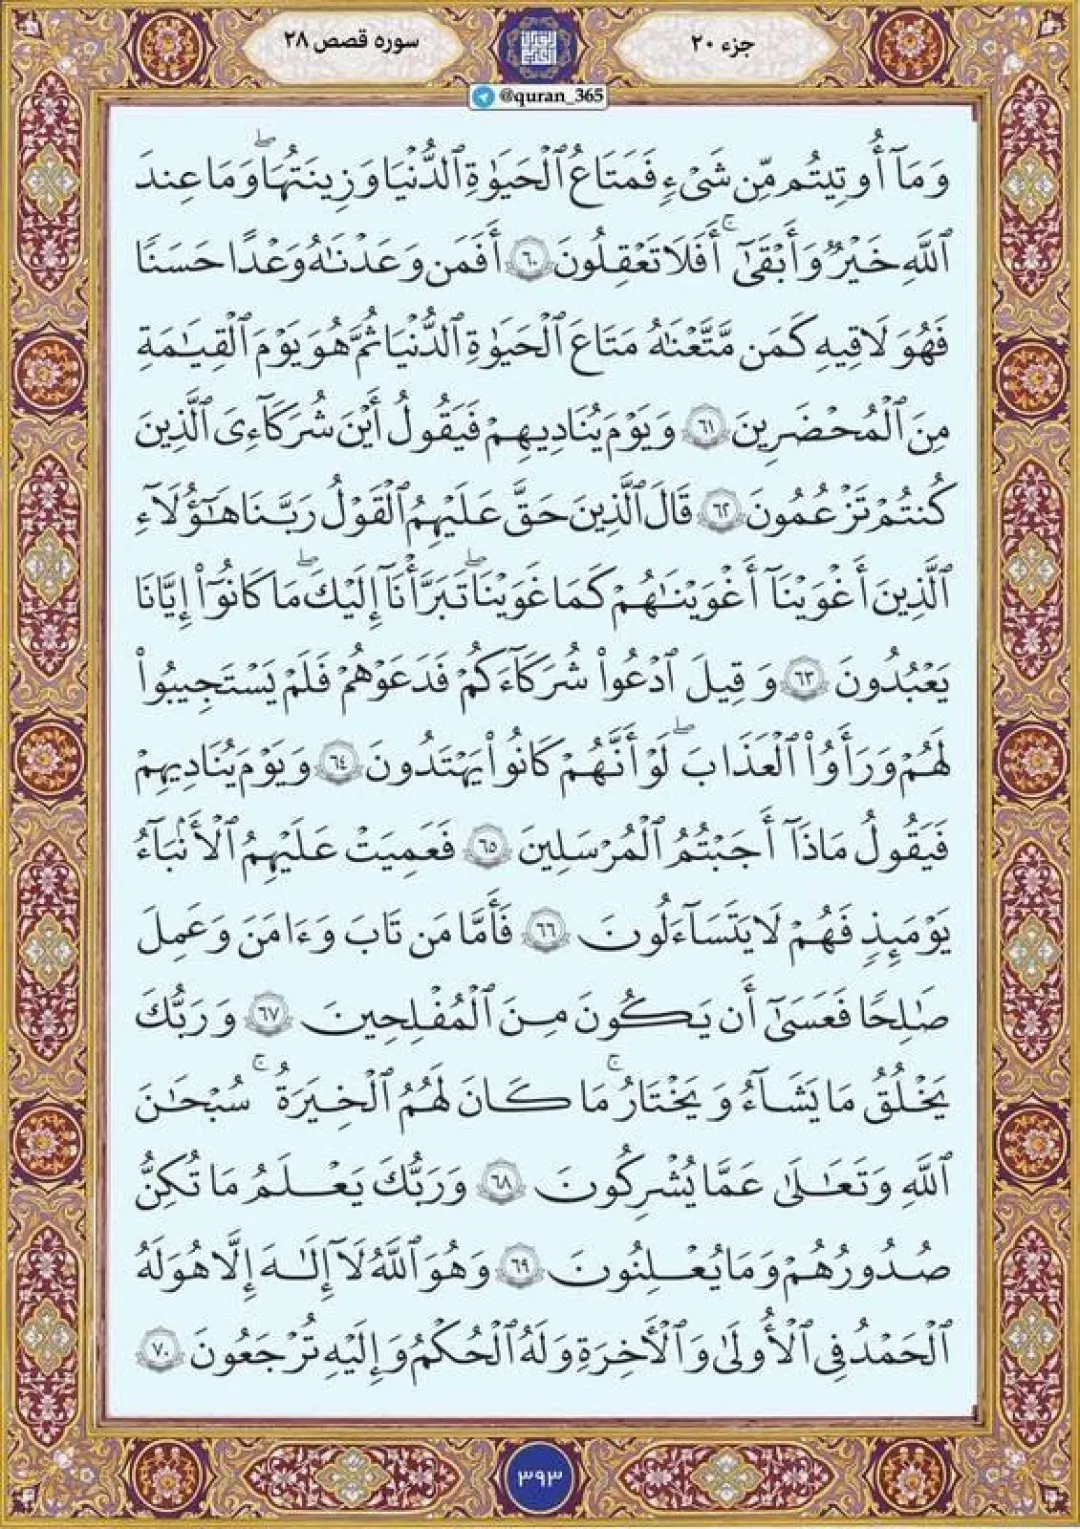 جزء ۲۰
سوره قصص ۲۸
@quran_365
وَمَآ أُوتِيتُم مِّن شَىْءٍ فَمَتَاعُ ٱلْحَيَوٰةِ ٱلدُّنْيَا وَزِينَتُهَا ۖ وَمَا عِندَ
ٱللَّهِ خَيْرٌ وَأَبْقَىٰٓ ۚ أَفَلَا تَعْقِلُونَ ٦٠ أَفَمَن وَعَدْنَـٰهُ وَعْدًا حَسَنًا
فَهُوَ لَاقِيهِ كَمَن مَّتَّعْنَـٰهُ مَتَاعَ ٱلْحَيَوٰةِ ٱلدُّنْيَا ثُمَّ هُوَ يَوْمَ ٱلْقِيَـٰمَةِ
مِنَ ٱلْمُحْضَرِينَ ٦١ وَيَوْمَ يُنَادِيهِمْ فَيَقُولُ أَيْنَ شُرَكَآءِىَ ٱلَّذِينَ
كُنتُمْ تَزْعُمُونَ ٦٢ قَالَ ٱلَّذِينَ حَقَّ عَلَيْهِمُ ٱلْقَوْلُ رَبَّنَا هَـٰٓؤُلَآءِ
ٱلَّذِينَ أَغْوَيْنَآ أَغْوَيْنَـٰهُمْ كَمَا غَوَيْنَا ۖ تَبَرَّأْنَآ إِلَيْكَ ۖ مَا كَانُوٓا۟ إِيَّانَا
يَعْبُدُونَ ٦٣ وَقِيلَ ٱدْعُوا۟ شُرَكَآءَكُمْ فَدَعَوْهُمْ فَلَمْ يَسْتَجِيبُوا۟
لَهُمْ وَرَأَوُا۟ ٱلْعَذَابَ ۖ لَوْ أَنَّهُمْ كَانُوا۟ يَهْتَدُونَ ٦٤ وَيَوْمَ يُنَادِيهِمْ
فَيَقُولُ مَاذَآ أَجَبْتُمُ ٱلْمُرْسَلِينَ ٦٥ فَعَمِيَتْ عَلَيْهِمُ ٱلْأَنۢبَآءُ
يَوْمَئِذٍ فَهُمْ لَا يَتَسَآءَلُونَ ٦٦ فَأَمَّا مَن تَابَ وَءَامَنَ وَعَمِلَ
صَـٰلِحًا فَعَسَىٰٓ أَن يَكُونَ مِنَ ٱلْمُفْلِحِينَ ٦٧ وَرَبُّكَ
يَخْلُقُ مَا يَشَآءُ وَيَخْتَارُ ۗ مَا كَانَ لَهُمُ ٱلْخِيَرَةُ ۚ سُبْحَـٰنَ
ٱللَّهِ وَتَعَـٰلَىٰ عَمَّا يُشْرِكُونَ ٦٨ وَرَبُّكَ يَعْلَمُ مَا تُكِنُّ
صُدُورُهُمْ وَمَا يُعْلِنُونَ ٦٩ وَهُوَ ٱللَّهُ لَآ إِلَـٰهَ إِلَّا هُوَ ۖ لَهُ
ٱلْحَمْدُ فِى ٱلْأُولَىٰ وَٱلْـَٔاخِرَةِ ۖ وَلَهُ ٱلْحُكْمُ وَإِلَيْهِ تُرْجَعُونَ ٧٠
۳۹۳